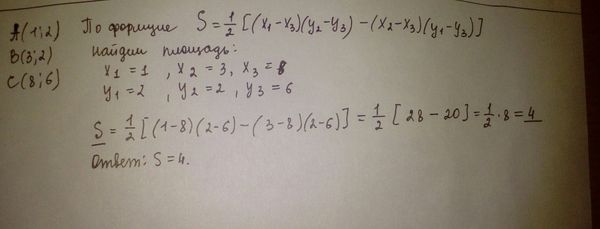 A(1;2) По формуле S = 1/2 [(x₁-x₃)(y₂-y₃) - (x₂-x₃)(y₁-y₃)]
B(3;2) найдем площадь:
C(8;6) x₁ = 1 , x₂ = 3, x₃ = 8
y₁ = 2 , y₂ = 2 , y₃ = 6
S = 1/2 [(1-8)(2-6) - (3-8)(2-6)] = 1/2 [28 - 20] = 1/2 · 8 = 4
Ответ: S = 4.